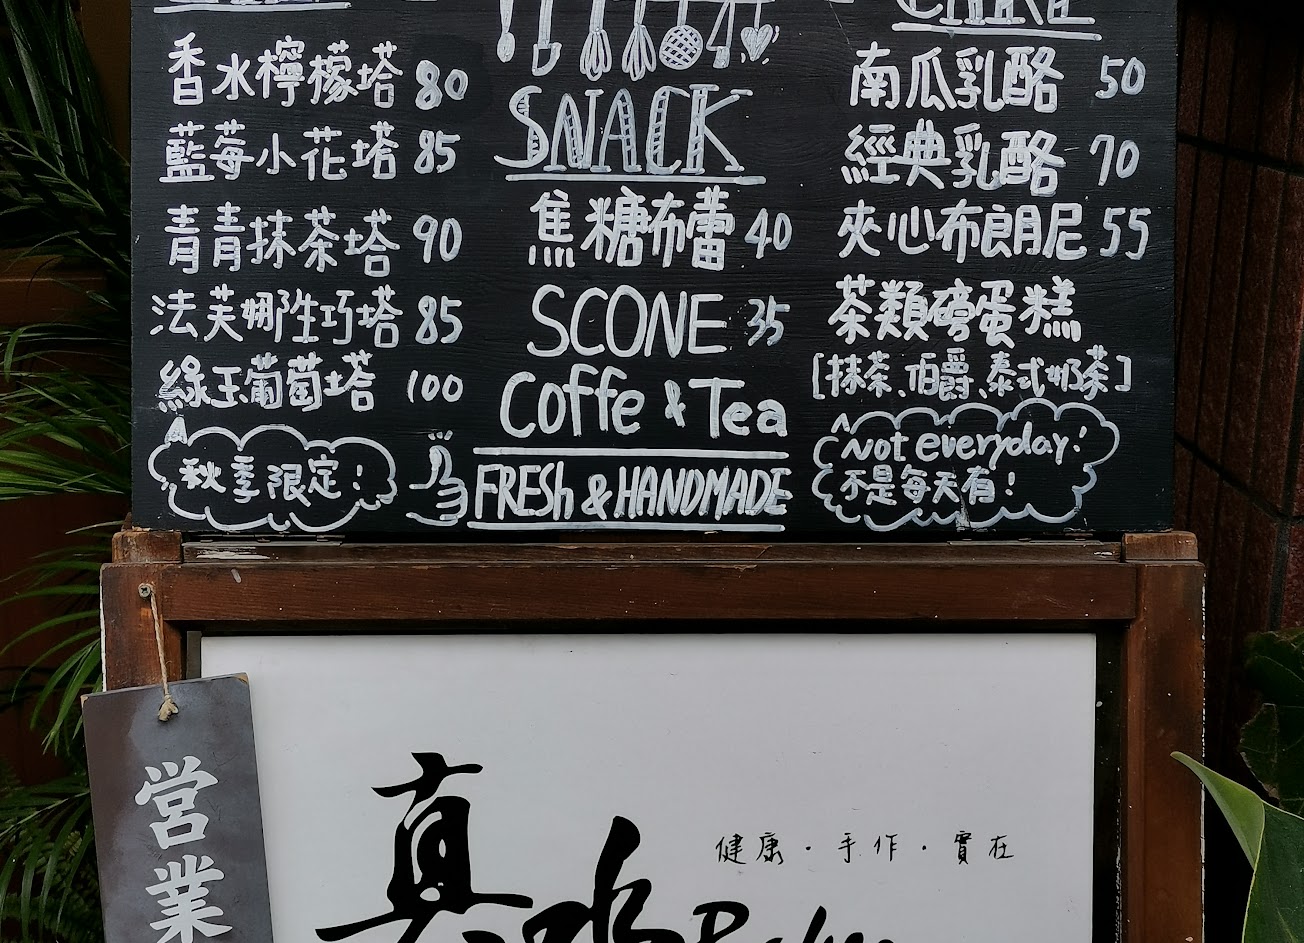 香水檸檬塔 80
藍莓小花塔 85
青青抹茶塔 90
法芙娜隨巧塔 85
綠玉葡萄塔 100
秋季限定!
SNACK
焦糖布蕾 40
SCONE 35
Coffe & Tea
FRESh & HANDMADE
CAKE
南瓜乳酪 50
經典乳酪 70
夾心布朗尼 55
茶類磅蛋糕
[抹茶、伯爵、泰式奶茶]
Not everyday!
不是每天有!
営業
真
健康・手作・實在